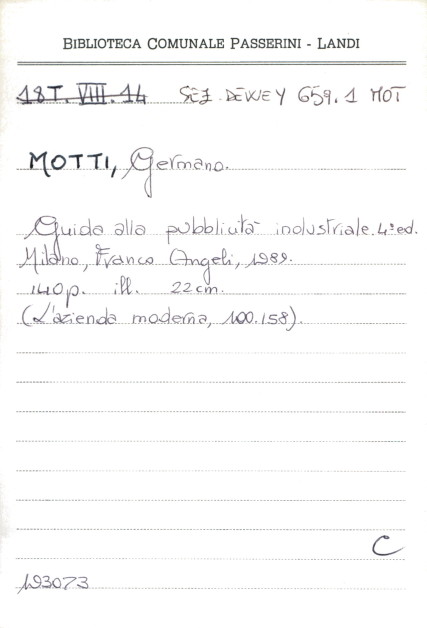 BIBLIOTECA COMUNALE PASSERINI - LANDI
18T. VIII. 14 SEZ. DEWEY 659.1 MOT
MOTTI, Germano.
Guida alla pubblicità industriale. 4ª ed.
Milano, Franco Angeli, 1989.
140 p. ill. 22 cm.
(L'azienda moderna, 100.158).
C
193073